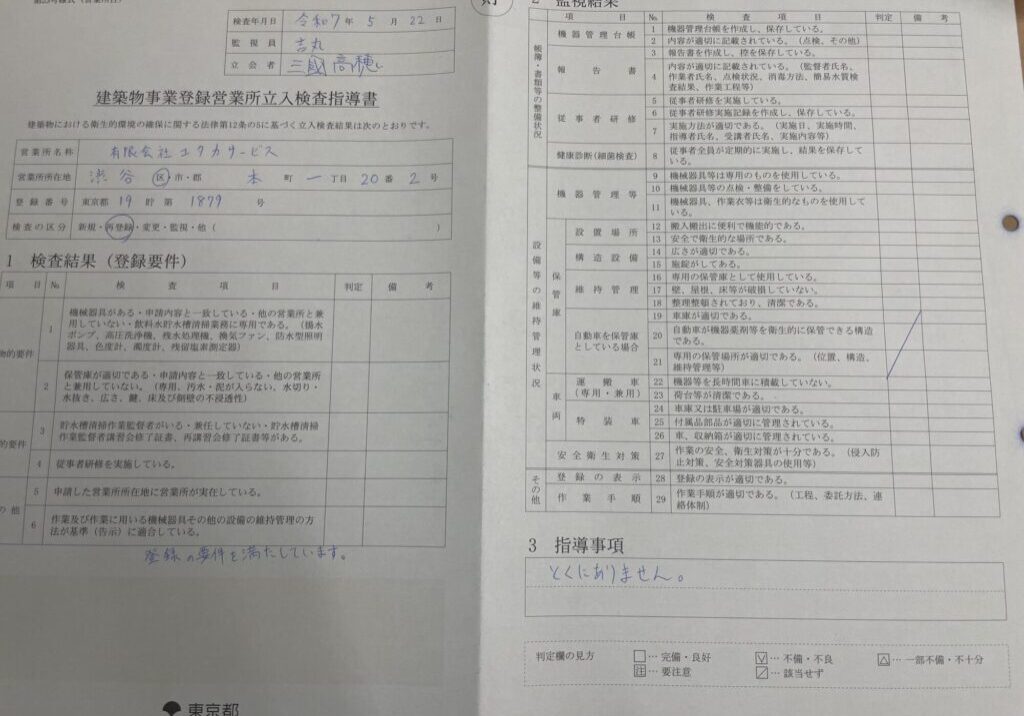 検査年月日 令和7年5月22日
監視員 吉丸
立会者 三國高穂
建築物事業登録営業所立入検査指導書
建築物における衛生的環境の確保に関する法律第12条の5に基づく立入検査結果は次のとおりです。
営業所名称 有限会社ユタカサービス
営業所所在地 渋谷 区・市・郡 本町一丁目20番2号
登録番号 東京都 19 貯 第 1879 号
検査の区分 新規・再登録・変更・監視・他( )
1 検査結果(登録要件)
項目 № 検査項目 判定 備考
物的要件
1 機械器具がある・申請内容と一致している・他の営業所と兼
用していない・飲料水貯水槽清掃業務に専用である。(揚水
ポンプ、高圧洗浄機、残水処理機、換気ファン、防水型照明
器具、色度計、濁度計、残留塩素測定器)
2 保管庫が適切である・申請内容と一致している・他の営業所
と兼用していない。(専用、汚水・泥が入らない、水切り・
水抜き、広さ、鍵、床及び側壁の不浸透性)
的要件
3 貯水槽清掃作業監督者がいる・兼任していない・貯水槽清掃
作業監督者講習会修了証書、再講習会修了証書等がある。
4 従事者研修を実施している。
の他
5 申請した営業所所在地に営業所が実在している。
6 作業及び作業に用いる機械器具その他の設備の維持管理の方
法が基準(告示)に適合している。
登録の要件を満たしています。
東京都
2 監視結果
項目 № 検査項目 判定 備考
帳簿・書類等の整備状況
機器管理台帳
1 機器管理台帳を作成し、保存している。
2 内容が適切に記載されている。(点検、その他)
報告書
3 報告書を作成し、控を保存している。
4 内容が適切に記載されている。(監督者氏名、
作業者氏名、点検状況、消毒方法、簡易水質検
査結果、作業工程等)
従事者研修
5 従事者研修を実施している。
6 従事者研修実施記録を作成し、保存している。
7 実施方法が適切である。(実施日、実施時間、
指導者氏名、受講者氏名、実施内容等)
健康診断(細菌検査)
8 従事者全員が定期的に実施し、結果を保存して
いる。
設備等の維持管理状況
機器管理等
9 機械器具等は専用のものを使用している。
10 機械器具等の点検・整備をしている。
11 機械器具、作業衣等は衛生的なものを使用して
いる。
保管庫
設置場所
12 搬入搬出に便利で機能的である。
13 安全で衛生的な場所である。
構造設備
14 広さが適切である。
15 施錠がしてある。
維持管理
16 専用の保管庫として使用している。
17 壁、屋根、床等が破損していない。
18 整理整頓されており、清潔である。
自動車を保管庫
としている場合
19 車庫が適切である。
20 自動車が機器薬剤等を衛生的に保管できる構造
である。
21 専用の保管場所が適切である。(位置、構造、
維持管理等)
車両
運搬車
(専用・兼用)
22 機器等を長時間車に積載していない。
23 荷台等が清潔である。
特装車
24 車庫又は駐車場が適切である。
25 付属品部品が適切に管理されている。
26 車、収納箱が適切に管理されている。
安全衛生対策
27 作業の安全、衛生対策が十分である。(侵入防
止対策、安全対策器具の使用等)
その他
登録の表示 28 登録の表示が適切である。
作業手順 29 作業手順が適切である。(工程、委託方法、連
絡体制)
3 指導事項
とくにありません。
判定欄の見方 □…完備・良好 ☑…不備・不良 △…一部不備・不十分
注…要注意 ⧄…該当せず